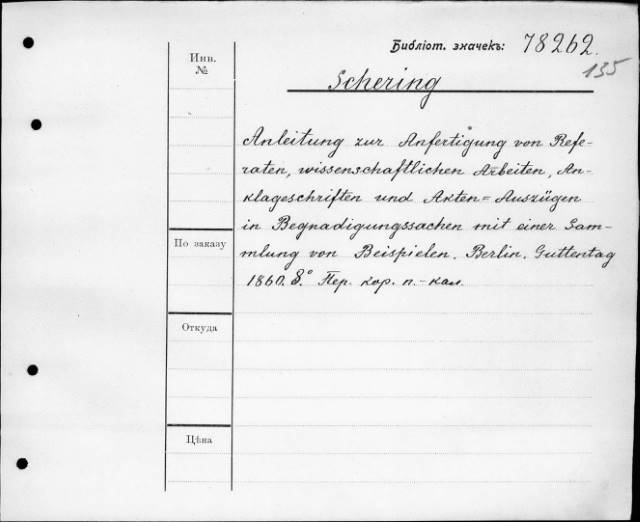 Библіот. значекъ: 78262.
135
Инв.
№
Schering
Anleitung zur Anfertigung von Refe-
raten, wissenschaftlichen Arbeiten, An-
klageschriften und Akten=Auszügen
in Begnadigungssachen mit einer Sam-
mlung von Beispielen. Berlin. Guttentag
1860. 8.° Пер. кор. п.-кал.
По заказу
Откуда
Цѣна